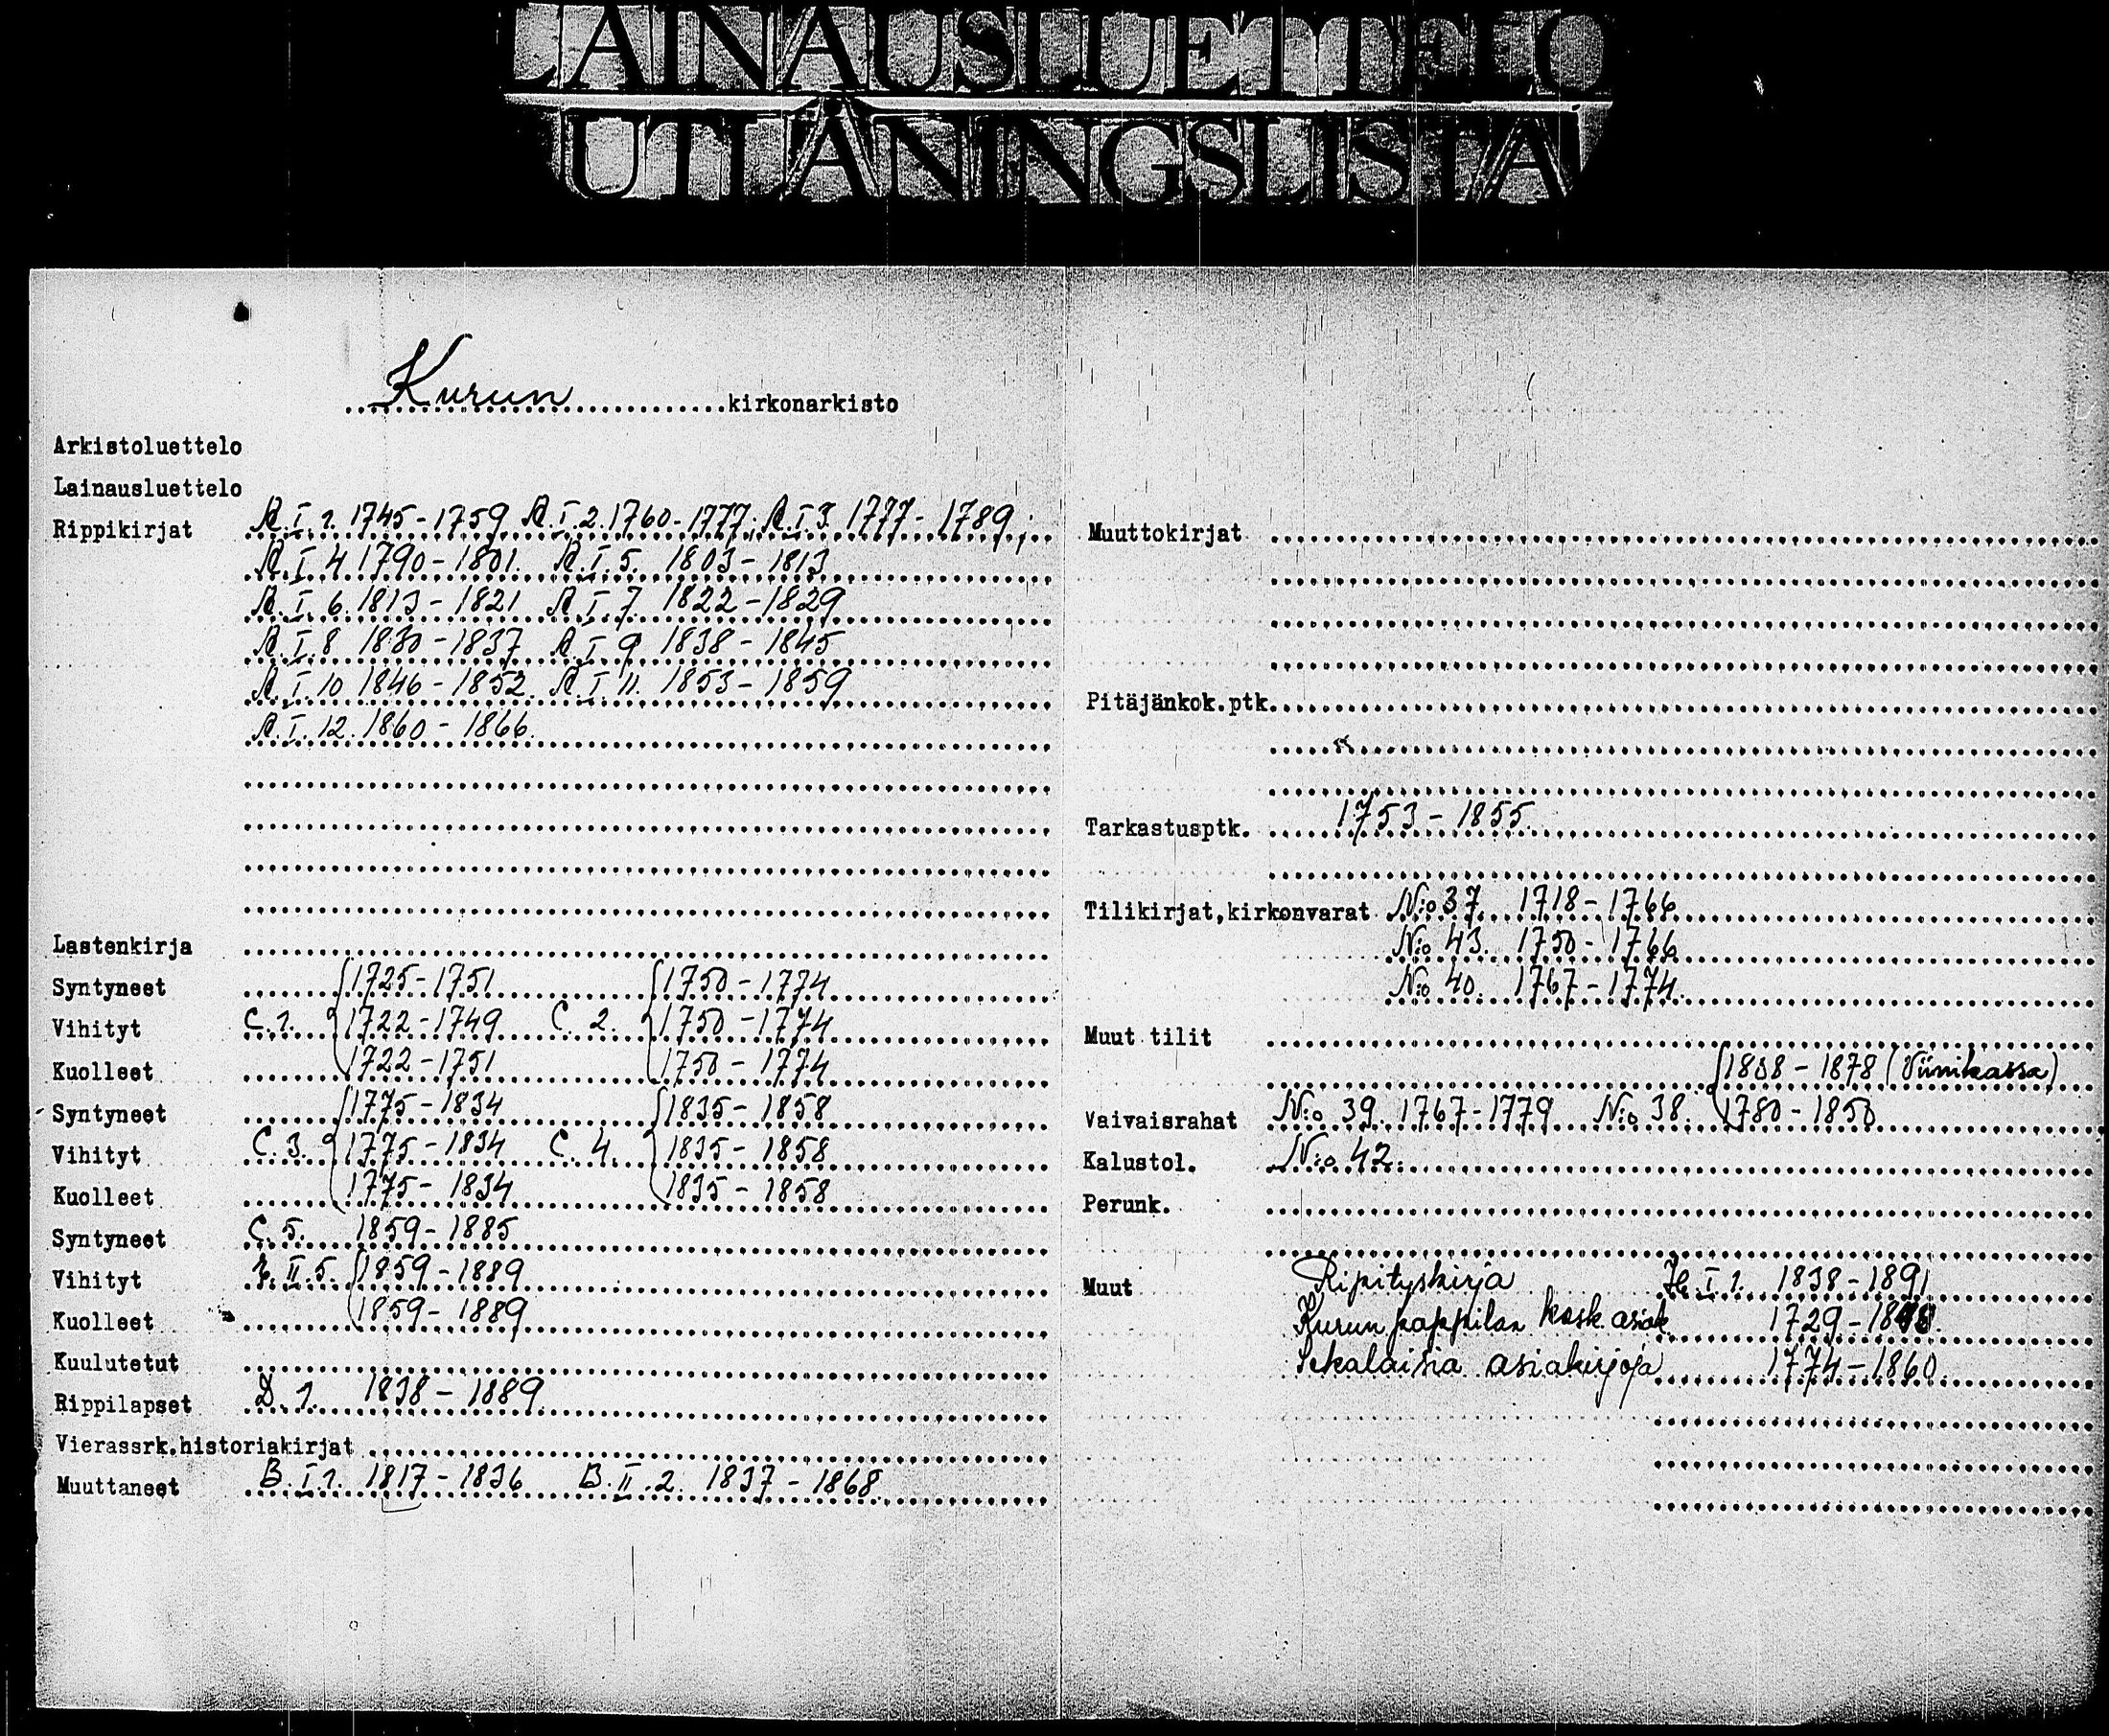 LAINAUSLUETTELO
UTLÅNINGSLISTA
Kurun kirkonarkisto
Arkistoluettelo
Lainausluettelo
Rippikirjat A.I.1. 1745-1759 A.I.2. 1760-1777; A.I.3. 1777-1789;
A.I.4 1790-1801. A.I.5. 1803-1813
A.I.6. 1813-1821 A.I.7. 1822-1829
A.I.8 1830-1837 A.I.9 1838-1845
A.I.10 1846-1852. A.I.11. 1853-1859
A.I.12. 1860-1866.
Lastenkirja
Syntyneet 1725-1751 1750-1774
Vihityt C.1. 1722-1749 C.2. 1750-1774
Kuolleet 1722-1751 1750-1774
Syntyneet 1775-1834 1835-1858
Vihityt C.3. 1775-1834 C.4. 1835-1858
Kuolleet 1775-1834 1835-1858
Syntyneet C.5. 1859-1885
Vihityt II.5. 1859-1889
Kuolleet 1859-1889
Kuulutetut
Rippilapset D.1. 1838-1889
Vierassrk.historiakirjat
Muuttaneet B.I.1. 1817-1836 B.II.2. 1837-1868
Muuttokirjat
Pitäjänkok.ptk.
Tarkastusptk. 1753-1855
Tilikirjat,kirkonvarat N:o 37. 1718-1766
N:o 43. 1750-1766
N:o 40. 1767-1774.
Muut tilit
1838-1878 (Viinikassa)
Vaivaisrahat N:o 39. 1767-1779 N:o 38. 1780-1850
Kalustol. N:o 42.
Perunk.
Muut Ripityskirja I 1. 1838-1891
Kurun pappilan kosk. asiak. 1729-
Sekalaisia asiakirjoja 1774-1860